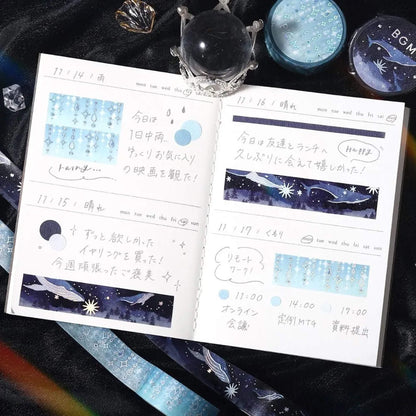 11/14/雨
mon tue wed thu fri sat sun
今日は
1日中雨。
ゆっくりお気に入り
の映画を観た!
11/15/晴れ
mon tue wed thu fri sat sun
ずっと欲しかった
イヤリングを買った!
今週頑張ったご褒美
11/16/晴れ
mon tue wed thu fri sat sun
今日は友達とランチへ
久しぶりに会えて嬉しかった!
11/17/くもり
mon tue wed thu fri sat sun
リモート
ワーク!
13:00
オンライン
会議
14:00
定例MTG
17:00
資料提出
BGM